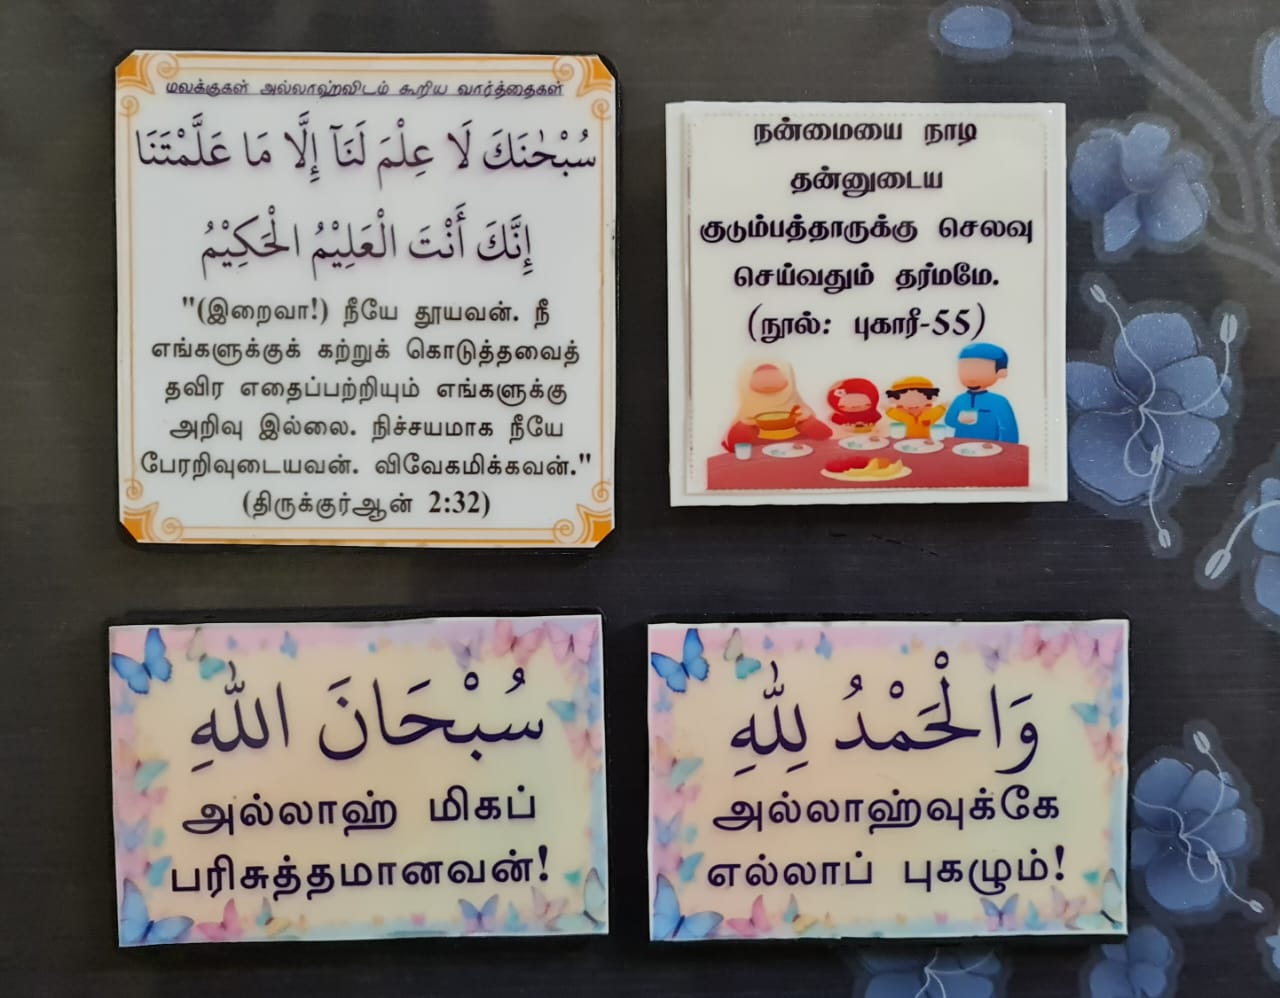 மலக்குகள் அல்லாஹ்விடம் கூறிய வார்த்தைகள்
سُبْحٰنَكَ لَا عِلْمَ لَنَآ إِلَّا مَا عَلَّمْتَنَا
إِنَّكَ أَنْتَ الْعَلِيْمُ الْحَكِيْمُ
"(இறைவா!) நீயே தூயவன். நீ
எங்களுக்குக் கற்றுக் கொடுத்தவைத்
தவிர எதைப்பற்றியும் எங்களுக்கு
அறிவு இல்லை. நிச்சயமாக நீயே
பேரறிவுடையவன். விவேகமிக்கவன்."
(திருக்குர்ஆன் 2:32)
நன்மையை நாடி
தன்னுடைய
குடும்பத்தாருக்கு செலவு
செய்வதும் தர்மமே.
(நூல்: புகாரீ-55)
سُبْحَانَ اللّٰهِ
அல்லாஹ் மிகப்
பரிசுத்தமானவன்!
وَالْحَمْدُ لِلّٰهِ
அல்லாஹ்வுக்கே
எல்லாப் புகழும்!